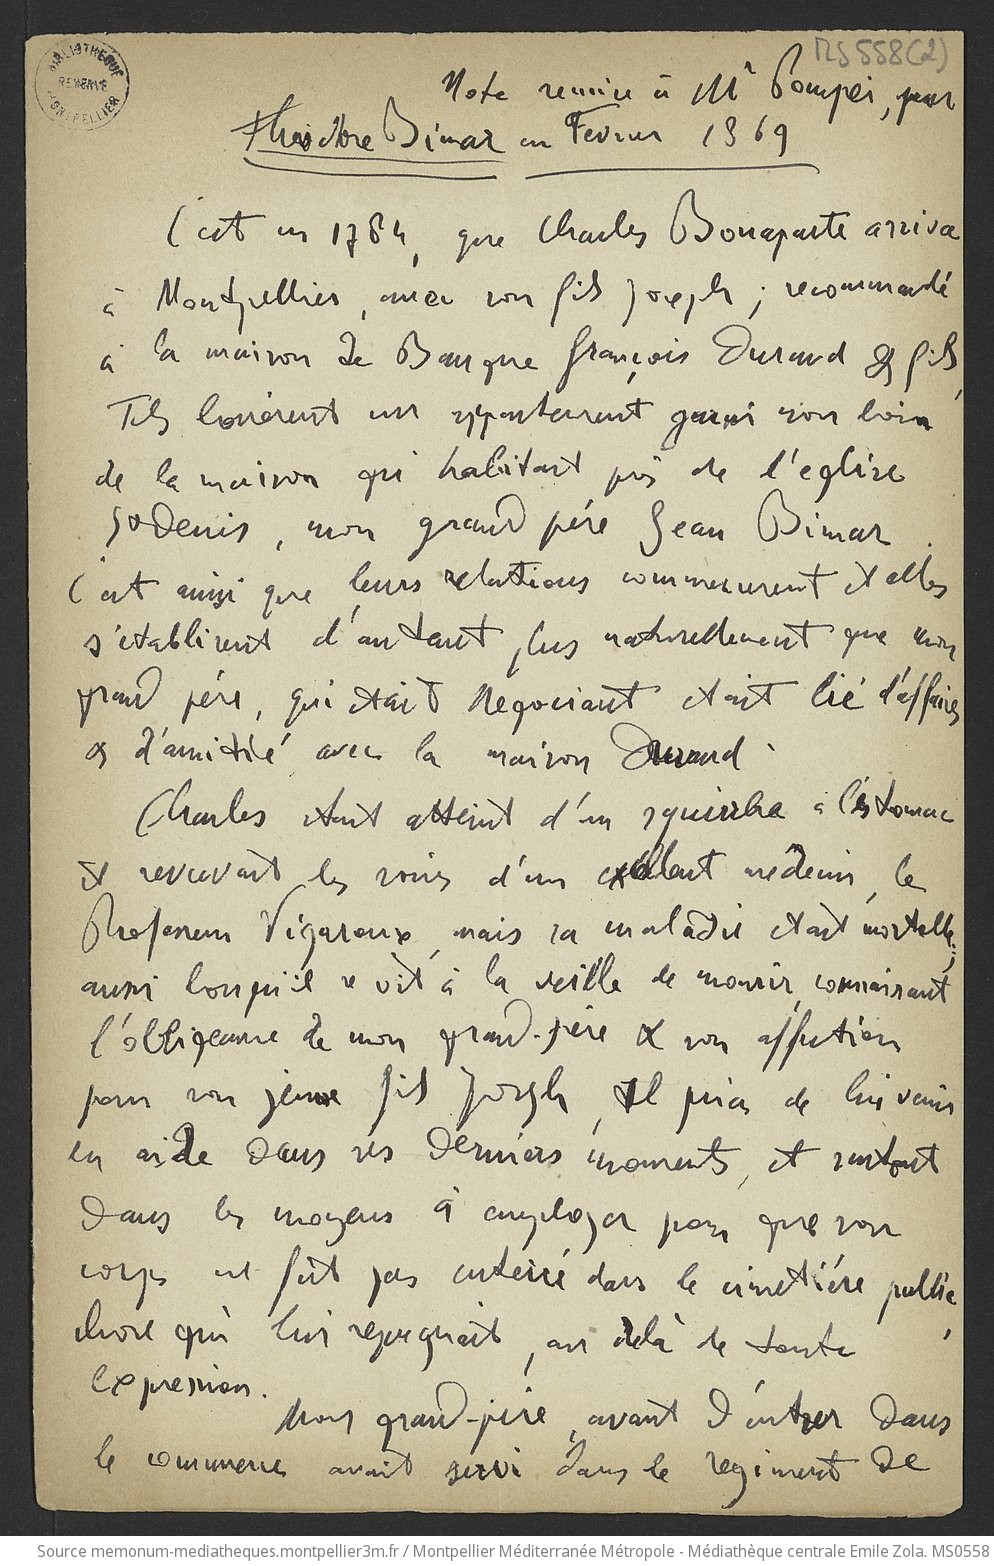 MS 558(2)
BIBLIOTHEQUE
RESERVE
MONTPELLIER
Note remise à Mr Pompei, par
Théodore Bimar en Fevrier 1869
C'est en 1784, que Charles Bonaparte arriva
à Montpellier, avec son fils Joseph ; recommandé
à la maison de Banque françois Durand & fils,
Ils louèrent un appartement garni non loin
de la maison qui habitait près de l'eglise
St Denis, mon grand père Jean Bimar.
C'est ainsi que leurs relations commencerent et elles
s'etablirent d'autant plus naturellement que mon
grand père, qui etait Negociant etait lié d'affaires
& d'amitié avec la maison Durand.
Charles etait atteint d'un squirrhe à l'estomac
et recevait les soins d'un exellent médecin, le
Professeur Vigaroux, mais sa maladie etait mortelle ;
aussi lorsqu'il se vit à la veille de mourir, connaissant
l'obligeance de mon grand-père & son affection
pour son jeune fils Joseph, Il pria de lui venir
en aide dans ses derniers moments, et surtout
dans les moyens à employer pour que son
corps ne fût pas enterré dans le cimetière public,
chose qui lui repugnait, au delà de toute
expression.
Mon grand-père, avant d'entrer dans
le commerce avait servi dans le regiment de
Source memonum-mediatheques.montpellier3m.fr / Montpellier Méditerranée Métropole - Médiathèque centrale Emile Zola. MS0558